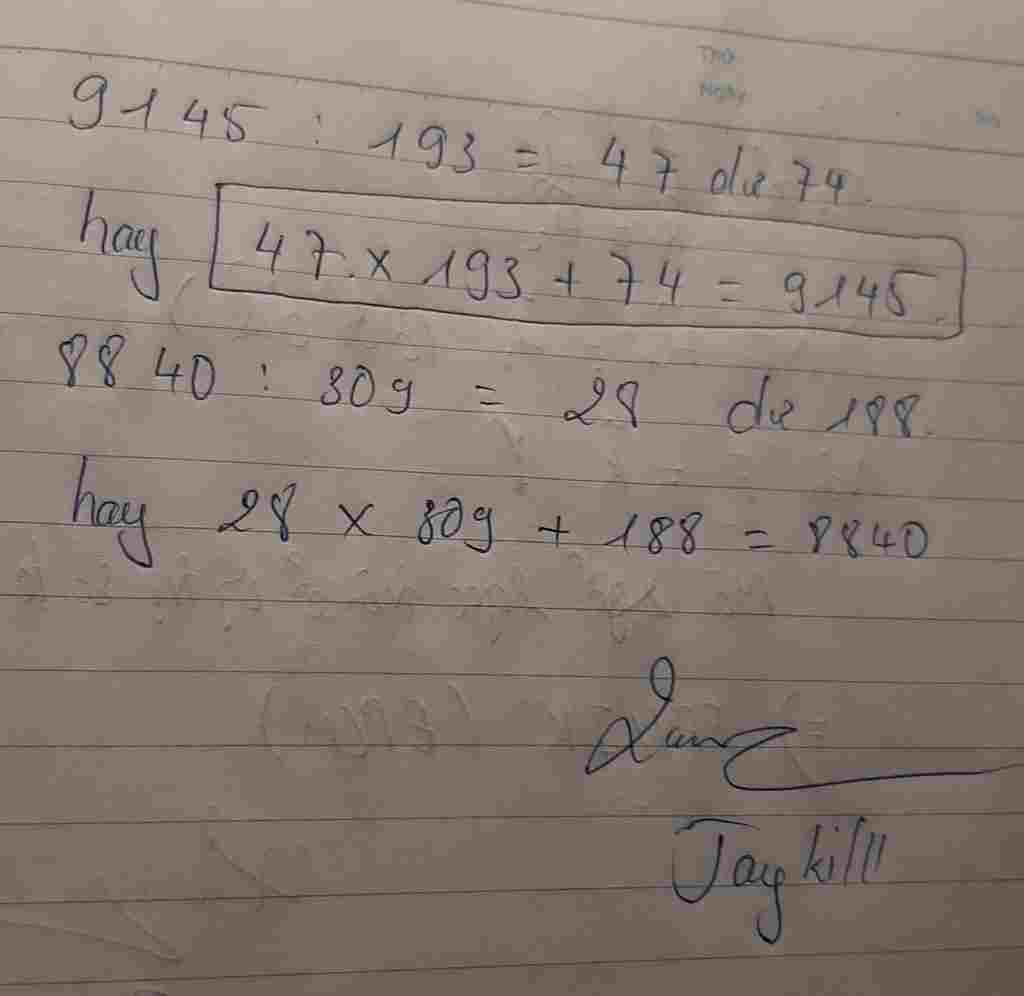 Thứ
Ngày
9145 : 193 = 47 dư 74.
hay 47 x 193 + 74 = 9145.
8840 : 309 = 28 dư 188.
hay 28 x 309 + 188 = 8840
Jaykilll